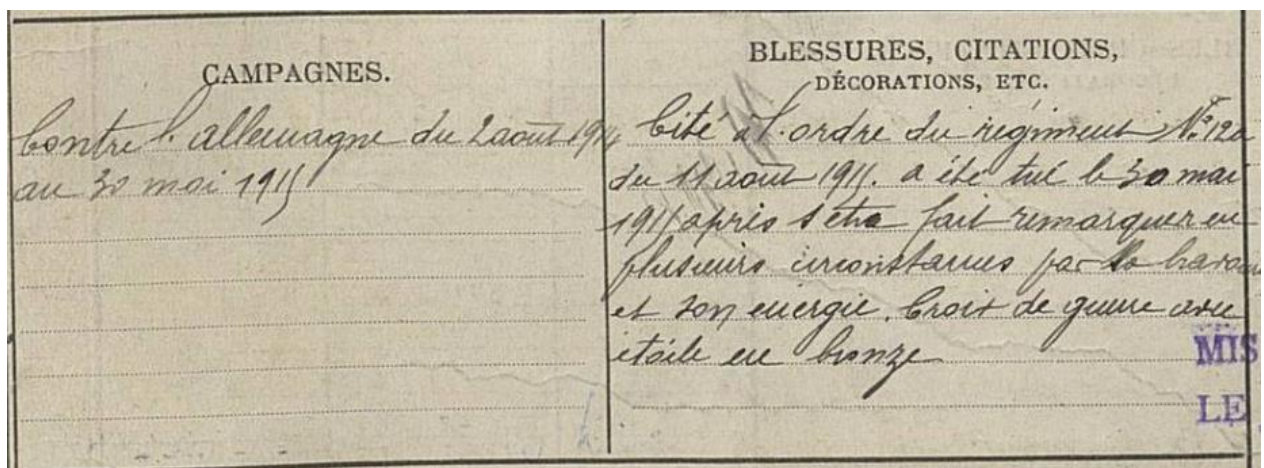 CAMPAGNES.
Contre l'allemagne du 2 août 1914
au 30 mai 1915
BLESSURES, CITATIONS,
DÉCORATIONS, ETC.
Cité à l'ordre du régiment N° 120
du 11 août 1915. a été tué le 30 mai
1915 après s'être fait remarquer en
plusieurs circonstances par sa bravoure
et son énergie. Croix de guerre avec
étoile en bronze
MIS
LE